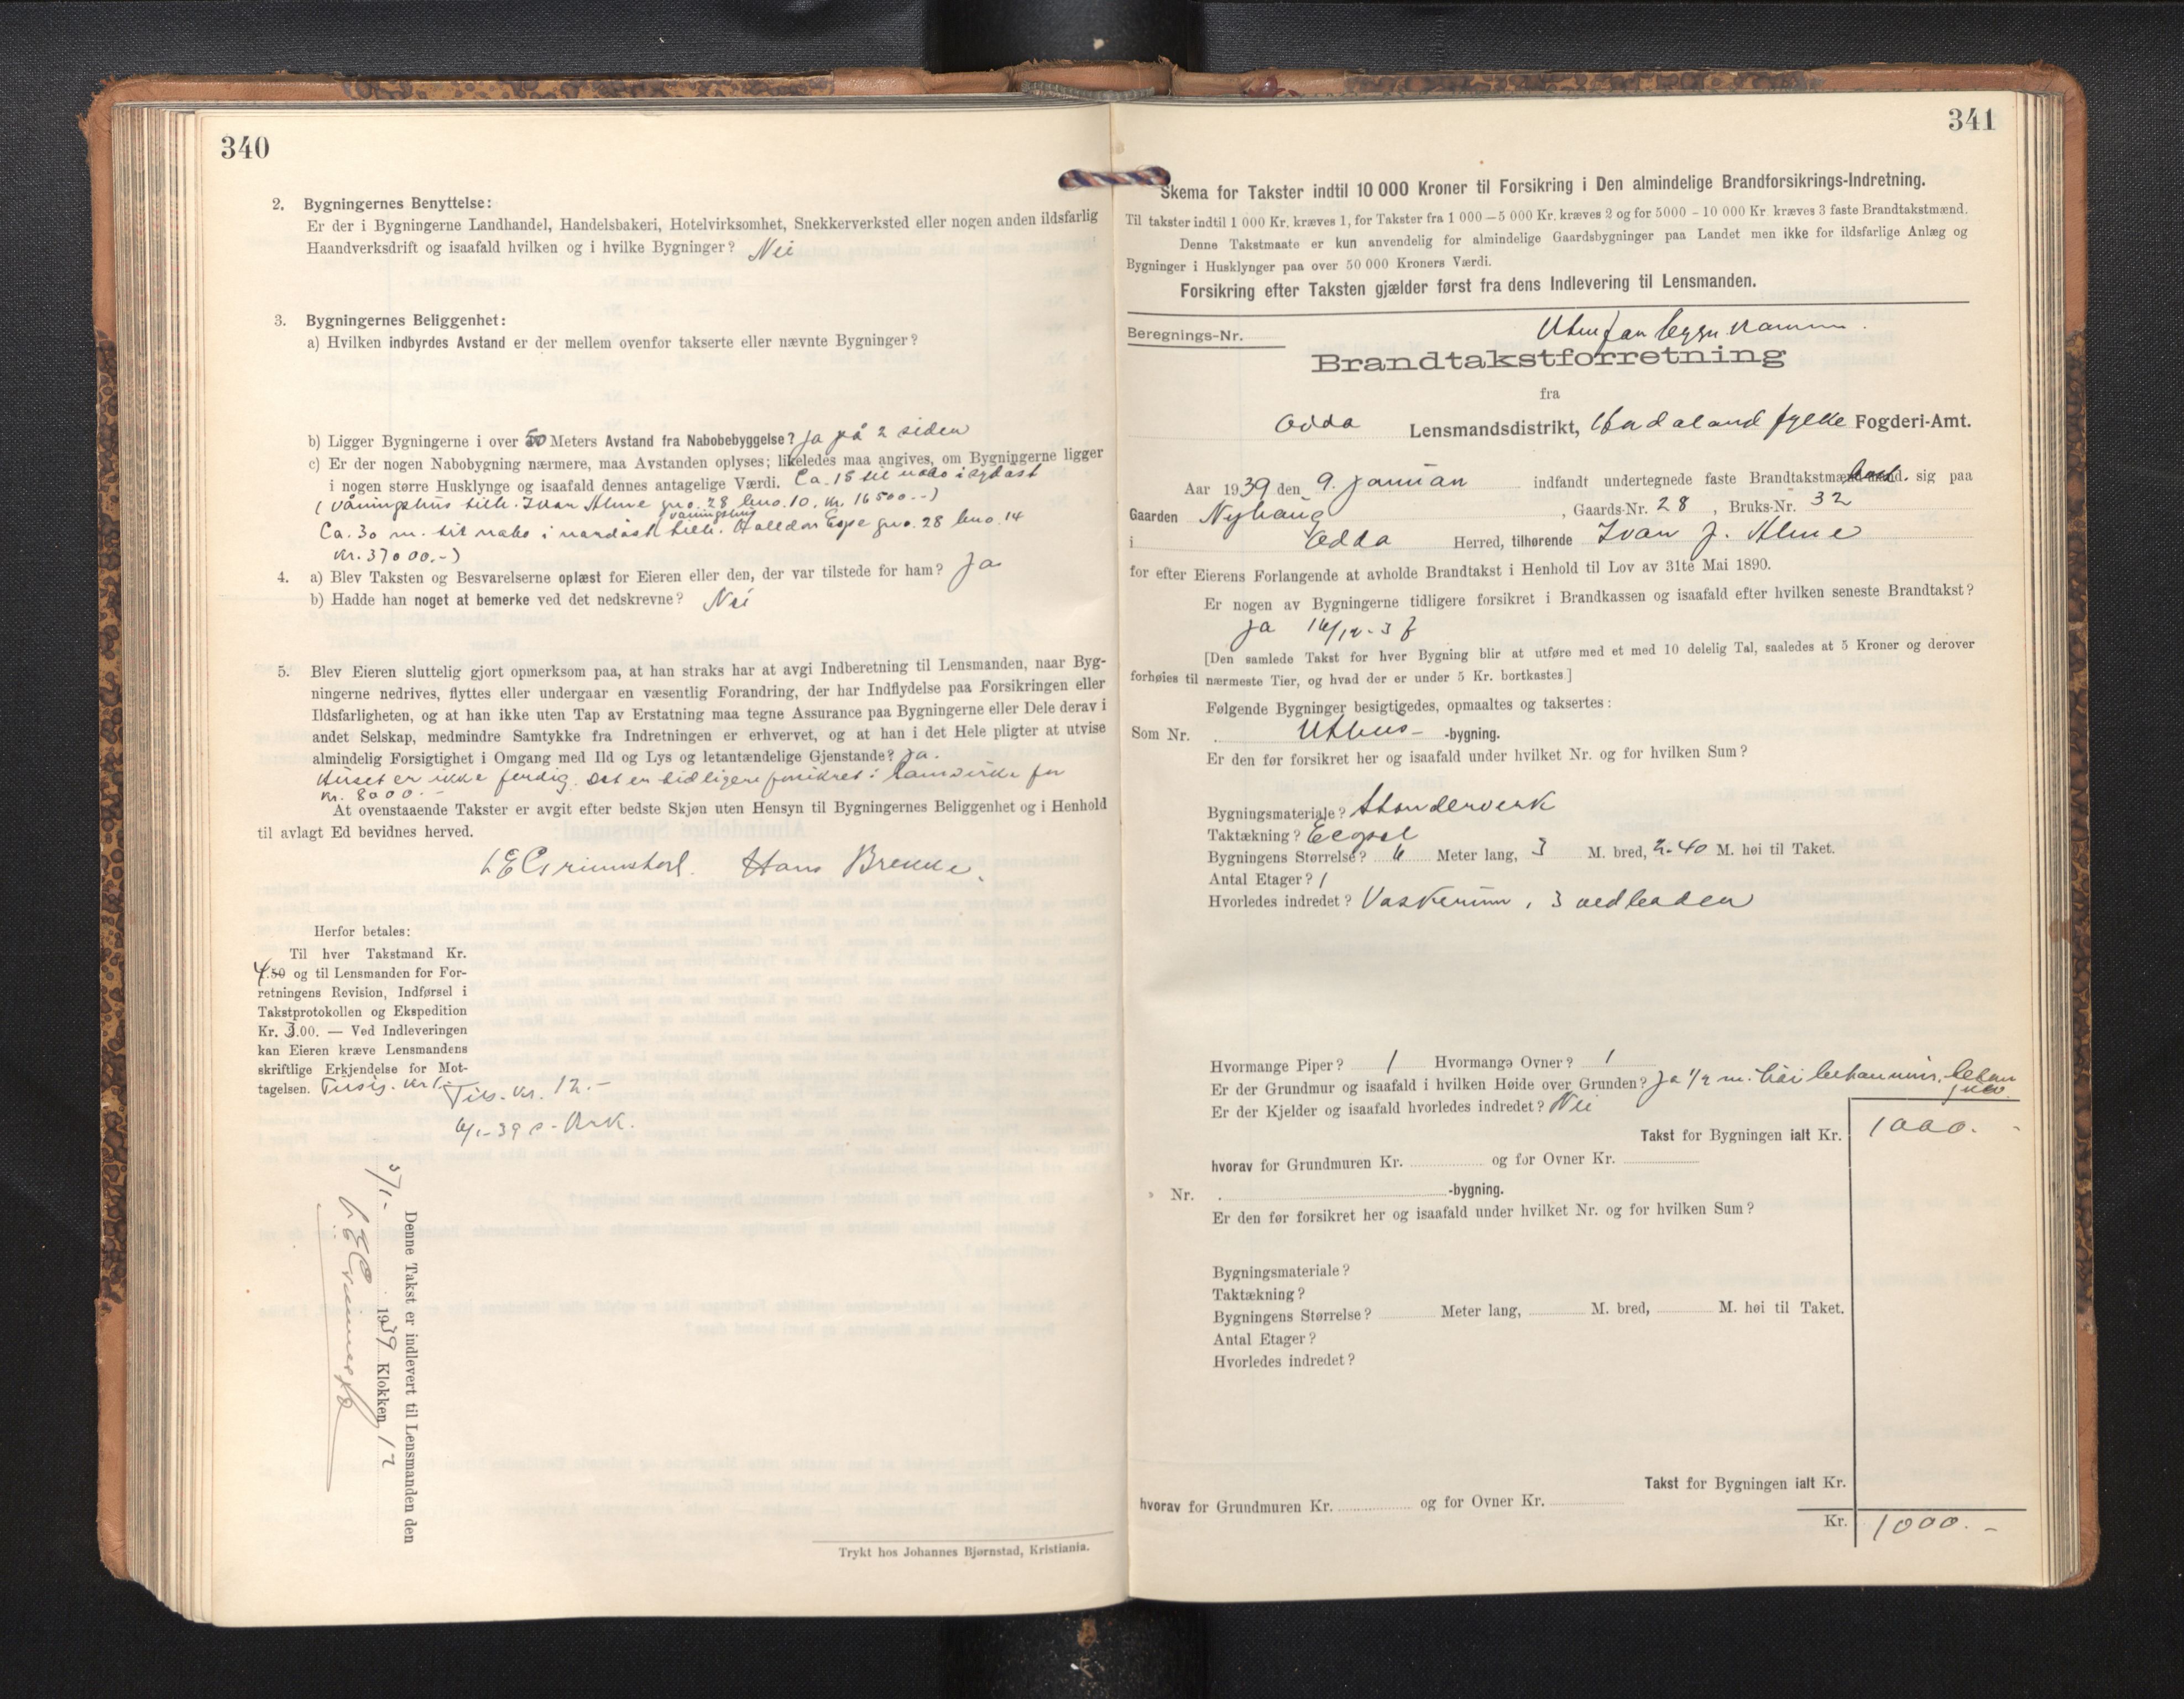 340
2. Bygningernes Benyttelse:
Er der i Bygningerne Landhandel, Handelsbakeri, Hotelvirksomhet, Snekkerverksted eller nogen anden ildsfarlig
Haandverksdrift og isaafald hvilken og i hvilke Bygninger? Nei
3. Bygningernes Beliggenhet:
a) Hvilken indbyrdes Avstand er der mellem ovenfor takserte eller nævnte Bygninger?
b) Ligger Bygningerne i over 50 Meters Avstand fra Nabobebyggelse? Ja på 2 siden
c) Er der nogen Nabobygning nærmere, maa Avstanden oplyses; likeledes maa angives, om Bygningerne ligger
i nogen større Husklynge og isaafald dennes antagelige Værdi. Ca. 15 til nabo i sydøst
(våningshus tilh. Ivar Alme gno. 28 bno. 10. kr. 16500.-)
våningshus
Ca. 30 m. til nabo i nordøst tilh. Halldor Espe gno. 28 bno. 14
kr. 37000.-)
4. a) Blev Taksten og Besvarelserne oplæst for Eieren eller den, der var tilstede for ham? Ja
b) Hadde han noget at bemerke ved det nedskrevne? Nei
5. Blev Eieren sluttelig gjort opmerksom paa, at han straks har at avgi Indberetning til Lensmanden, naar Byg-
ningerne nedrives, flyttes eller undergaar en væsentlig Forandring, der har Indflydelse paa Forsikringen eller
Ildsfarligheten, og at han ikke uten Tap av Erstatning maa tegne Assurance paa Bygningerne eller Dele derav i
andet Selskap, medmindre Samtykke fra Indretningen er erhvervet, og at han i det Hele pligter at utvise
almindelig Forsigtighet i Omgang med Ild og Lys og letantændelige Gjenstande? Ja.
Huset er ikke ferdig. Det er tidligere forsikret i Samvirke for
kr. 8000.-
At ovenstaaende Takster er avgit efter bedste Skjøn uten Hensyn til Bygningernes Beliggenhet og i Henhold
til avlagt Ed bevidnes herved.
Hans Brekke.
Herfor betales:
Til hver Takstmand Kr.
4.50 og til Lensmanden for For-
retningens Revision, Indførsel i
Takstprotokollen og Ekspedition
Kr. 3.00. — Ved Indleveringen
kan Eieren kræve Lensmandens
skriftlige Erkjendelse for Mot-
tagelsen.
Tils. kr. 12.-
Denne Takst er indlevert til Lensmanden den
1939 Klokken 12
Trykt hos Johannes Bjørnstad, Kristiania.
341
Skema for Takster indtil 10 000 Kroner til Forsikring i Den almindelige Brandforsikrings-Indretning.
Til takster indtil 1 000 Kr. kræves 1, for Takster fra 1 000 — 5 000 Kr. kræves 2 og for 5000 - 10 000 Kr. kræves 3 faste Brandtakstmænd.
Denne Takstmaate er kun anvendelig for almindelige Gaardsbygninger paa Landet men ikke for ildsfarlige Anlæg og
Bygninger i Husklynger paa over 50 000 Kroners Værdi.
Forsikring efter Taksten gjælder først fra dens Indlevering til Lensmanden.
Beregnings-Nr.
Brandtakstforretning
fra
Odda Lensmandsdistrikt, Hordaland fylke Fogderi-Amt.
Aar 1939 den 9. januar indfandt undertegnede faste Brandtakstmænd sig paa
Gaarden Nyhaug, Gaards-Nr. 28, Bruks-Nr. 32
i Odda Herred, tilhørende Ivar J. Alme
for efter Eierens Forlangende at avholde Brandtakst i Henhold til Lov av 31te Mai 1890.
Er nogen av Bygningerne tidligere forsikret i Brandkassen og isaafald efter hvilken seneste Brandtakst?
Ja
[Den samlede Takst for hver Bygning blir at utføre med et med 10 delelig Tal, saaledes at 5 Kroner og derover
forhøies til nærmeste Tier, og hvad der er under 5 Kr. bortkastes.]
Følgende Bygninger besigtigedes, opmaaltes og taksertes:
Som Nr. Uthus- -bygning.
Er den før forsikret her og isaafald under hvilket Nr. og for hvilken Sum?
Bygningsmateriale? Standerverk
Taktækning?
Bygningens Størrelse? 6 Meter lang, 3 M. bred, 2.40 M. høi til Taket.
Antal Etager? 1
Hvorledes indredet? Vaskerum, 3 vedboder
Hvormange Piper? 1 Hvormange Ovner? 1
Er der Grundmur og isaafald i hvilken Høide over Grunden? Ja 1/2 m. høi
Er der Kjelder og isaafald hvorledes indredet? Nei
Takst for Bygningen ialt Kr. 1000.-
hvorav for Grundmuren Kr. og for Ovner Kr.
» Nr. -bygning.
Er den før forsikret her og isaafald under hvilket Nr. og for hvilken Sum?
Bygningsmateriale?
Taktækning?
Bygningens Størrelse? Meter lang, M. bred, M. høi til Taket.
Antal Etager?
Hvorledes indredet?
Takst for Bygningen ialt Kr.
hvorav for Grundmuren Kr. og for Ovner Kr.
Kr. 1000.-